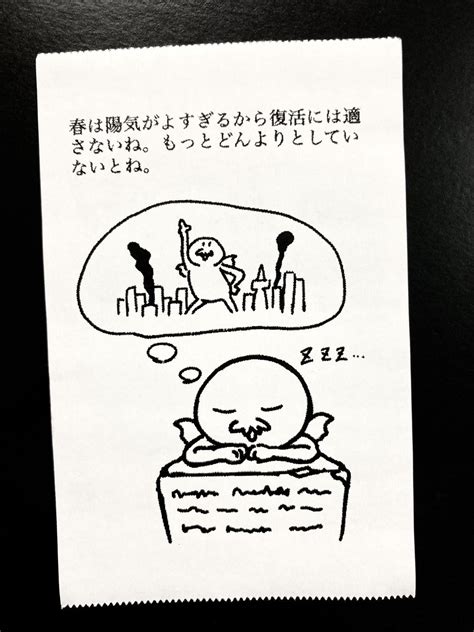 春は陽気がよすぎるから復活には適
さないね。もっとどんよりとしてい
ないとね。
zzz...